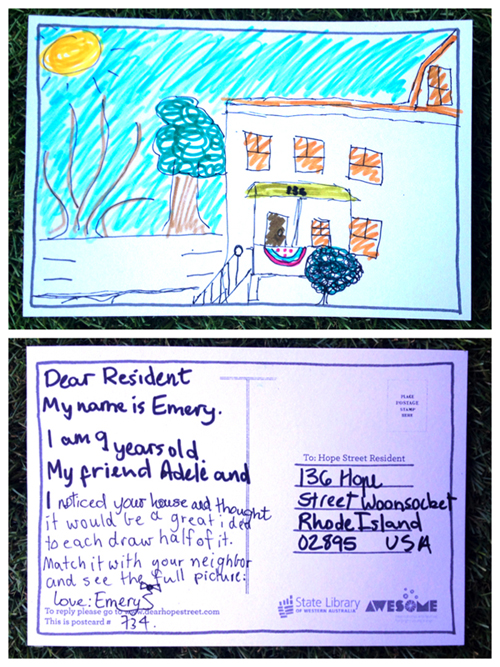 136
Dear Resident
My name is Emery.
I am 9 years old.
My friend Adele and
I noticed your house and thought
it would be a great idea
to each draw half of it.
Match it with your neighbor
and see the full picture:
Love: Emery
To reply please go to www.dearhopestreet.com
This is postcard # 734.
PLACE
POSTAGE
STAMP
HERE
To: Hope Street Resident
136 Hope
Street Woonsocket
Rhode Island
02895 USA
State Library
OF WESTERN AUSTRALIA
AWESOME